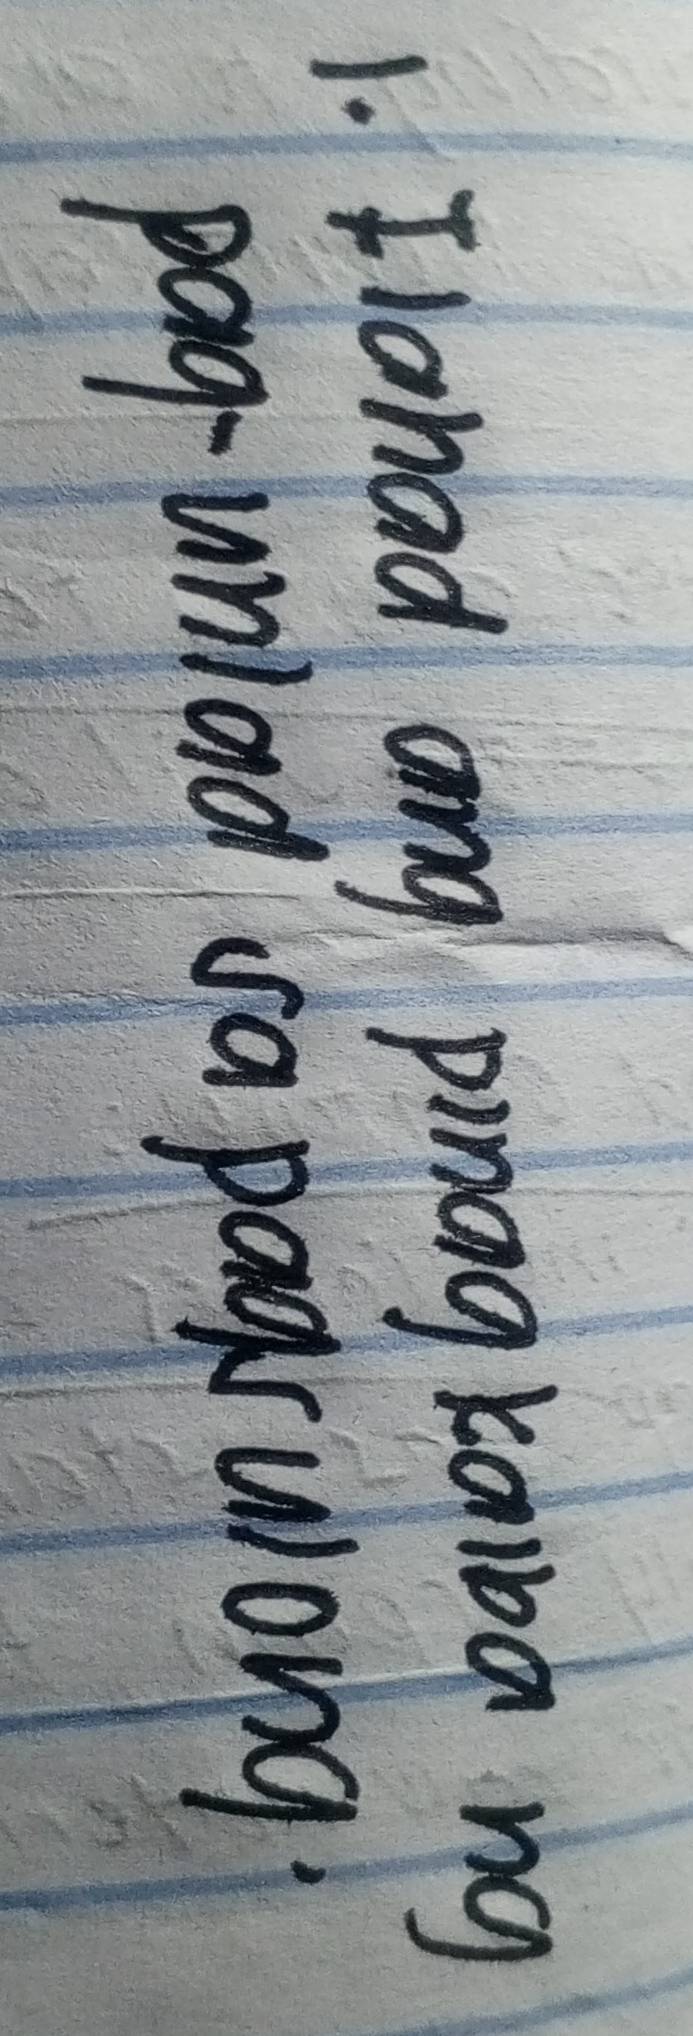 1. Ilahad ang pinagkaiba ng
pag-unlad sa pagsulong.